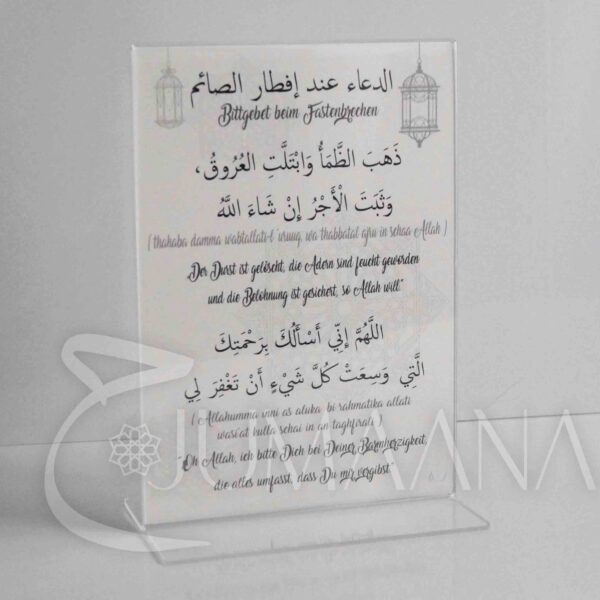 الدعاء عند إفطار الصائم
Bittgebet beim Fastenbrechen
ذَهَبَ الظَّمَأُ وَابْتَلَّتِ العُرُوقُ،
وَثَبَتَ الْأَجْرُ إِنْ شَاءَ اللَّهُ
( thahaba damma wabtallati-l´uruuq, wa thabbatal ajru in schaa Allah )
„Der Durst ist gelöscht, die Adern sind feucht geworden
und die Belohnung ist gesichert, so Allah will.“
اللَّهُمَّ إِنِّي أَسْأَلُكَ بِرَحْمَتِكَ
الَّتِي وَسِعَتْ كُلَّ شَيْءٍ أَنْ تَغْفِرَ لِي
( Allahumma inni as aluka, bi rahmatika allati
wasi´at kulla schai in an taghfirali )
"Oh Allah, ich bitte Dich bei Deiner Barmherzigkeit,
die alles umfasst, dass Du mir vergibst"
JUMAANA